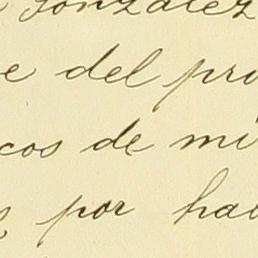 Gonzalez
e del pro
cos de mi
por ha